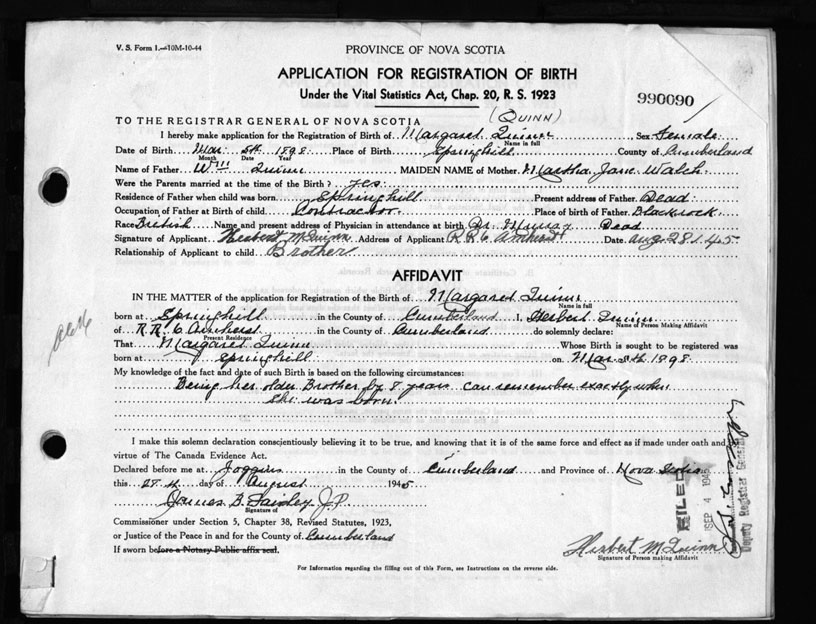 V. S. Form 1.—10M-10-44
PROVINCE OF NOVA SCOTIA
APPLICATION FOR REGISTRATION OF BIRTH
Under the Vital Statistics Act, Chap. 20, R. S. 1923
990090
(QUINN)
TO THE REGISTRAR GENERAL OF NOVA SCOTIA
I hereby make application for the Registration of Birth of Margaret Quinn Sex Female
Name in full
Date of Birth Mar. 8th 1898 Place of Birth Springhill County of Cumberland
Month Date Year
Name of Father Wm Quinn MAIDEN NAME of Mother Martha Jane Walch
Were the Parents married at the time of the Birth? yes
Residence of Father when child was born Springhill Present address of Father Dead
Occupation of Father at Birth of child Contractor Place of birth of Father Blackrock
Race British Name and present address of Physician in attendance at birth Dr. Murray Dead
Signature of Applicant Herbert McQuinn Address of Applicant R R 6 Amherst Date Aug 28 1945
Relationship of Applicant to child Brother
AFFIDAVIT
IN THE MATTER of the application for Registration of the Birth of Margaret Quinn
Name in full
born at Springhill in the County of Cumberland I, Herbert Quinn
Name of Person Making Affidavit
of R.R. 6 Amherst in the County of Cumberland do solemnly declare:
Present Residence
That Margaret Quinn Whose Birth is sought to be registered was
born at Springhill on Mar 8th 1898
My knowledge of the fact and date of such Birth is based on the following circumstances:
Being her older Brother by 8 years can remember exactly when
she was born
I make this solemn declaration conscientiously believing it to be true, and knowing that it is of the same force and effect as if made under oath and
virtue of The Canada Evidence Act.
Declared before me at Joggins in the County of Cumberland and Province of Nova Scotia
this 28th day of August 1945
James B. J.P.
Signature of
Commissioner under Section 5, Chapter 38, Revised Statutes, 1923,
or Justice of the Peace in and for the County of Cumberland
If sworn before a Notary Public affix seal.
FILED
SEP 4 1945
Deputy Registrar General
Herbert McQuinn
Signature of Person making Affidavit
For Information regarding the filling out of this Form, see Instructions on the reverse side.